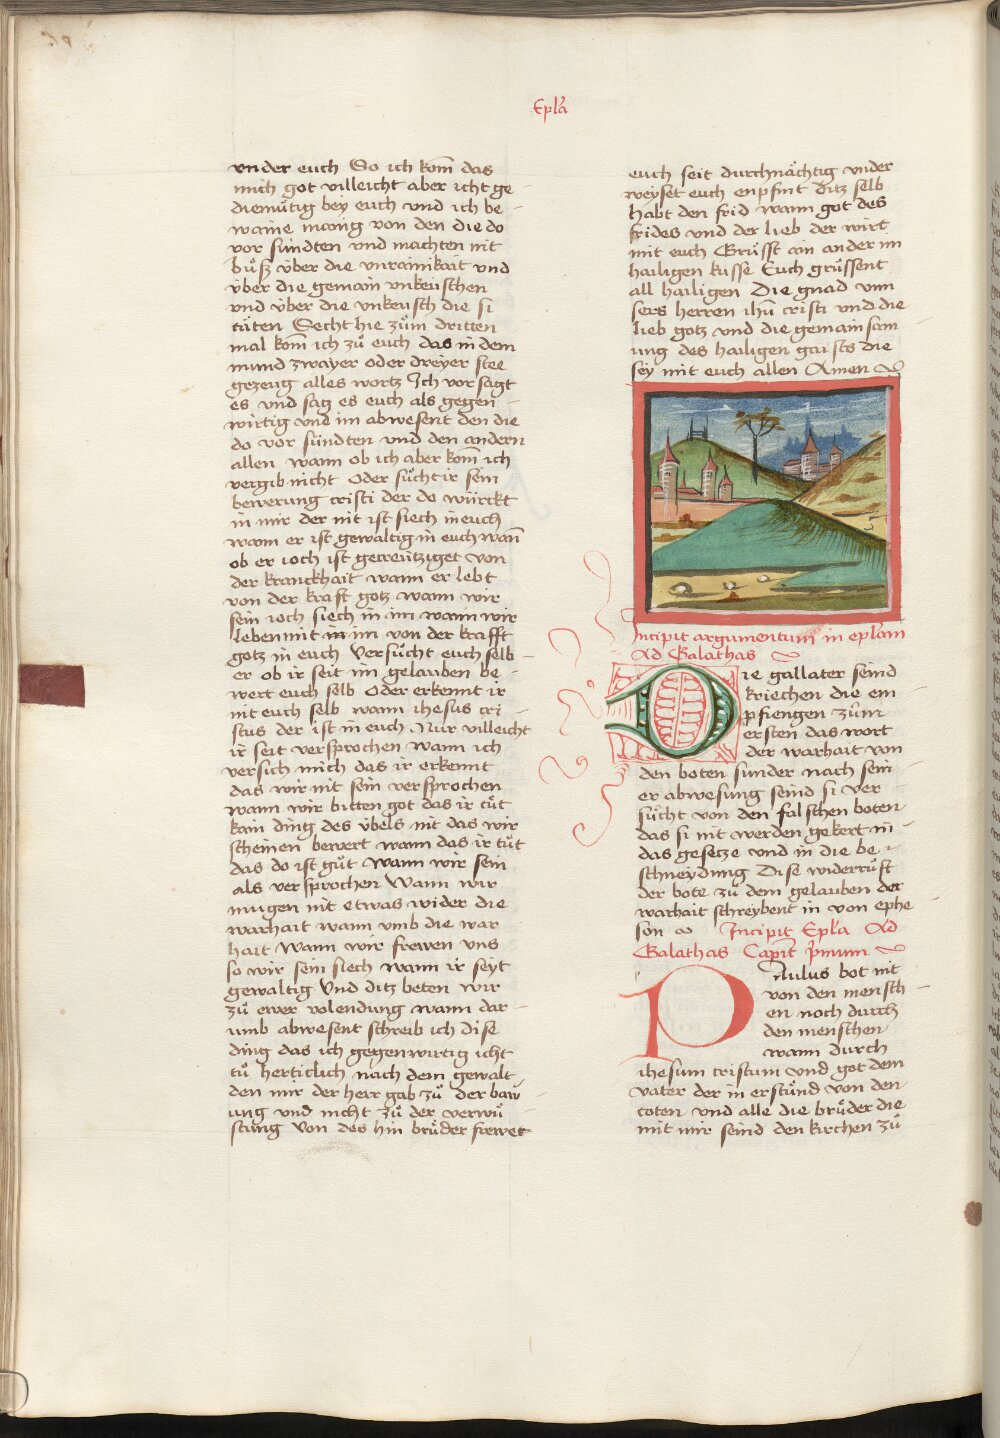 Epl̃a
vnder euch So ich kom̃ das
mich got villeicht aber icht ge
diemuͤtig bey euch vnd ich be
waine manig von den die do
vor sundten vnd machten nit
buͦß vͤber die vnrainikait vnd
vͤber die gemain vnkeuschen
vnd vͤber die vnkeusch die si
taͤten Secht hie zuͦm dritten
mal kom̃ ich zuͦ euch das in dem
mund zwayer oder dreyer stee
gezeug alles wortz Ich vor sagt
es vnd sag es euch als gegen
wirtig vnd im abwesent den die
do vor suͤndten vnd den andern
allen wann ob ich aber kom̃ ich
vergib nicht Oder suͦcht ir sein
bewerung cristi der do wuͤrckt
in mir der nit ist siech in euch
wann er ist gewaltig in euch wañ
ob er ioch ist gecreutziget von
der kranckhait wann er lebt
von der kraft gotz wann wir
sein ioch siech in im wann wir
leben mit im von der krafft
gotz in euch Versuͦcht euch selb
er ob ir seit im gelauben be
wert euch selb Oder erkennt ir
nit euch selb wann ihesus cri
stus der ist in euch Nur villeicht
ir seit versprochen wann ich
versich mich das ir erkennt
das wir nit sein versprochen
wann wir bitten got das ir tuͤt
kain ding des vͤbels nit das wir
scheinen bewert wann das ir tuͤt
das do ist guͦt wann wir sein
als versprochen Wann wir
mugen nit etwas wider die
warhait wann vmb die war
hait Wann wir frewen vns
so wir sein siech wann ir seyt
gewaltig Vnd ditz beten wir
zuͦ ewer volendung wann dar
vmb abwesent schreib ich dise
ding das ich gegenwirtig icht
tuͦ hertiklich nach dem gewalt
den mir der herr gab zuͦ der baw
ung vnd nicht zuͦ der verwuͤ
stung Von des hin bruͤder frewet
euch seit durchnaͤchtig vnder
weyset euch enpfint ditz selb
habt den frid wann got des
frides vnd der lieb der wirt
mit euch Gruͤsst ain ander im
hailigen kusse Euch gruͤssent
all hailigen Die gnad vnn
sers herren ihũ cristi vnd die
lieb gotz vnd die gemainsam
ung des hailigen gaists die
sey mit euch allen Amen
Incipit argumentum in epl̃am
Ad Galathas
Die gallater seind
kriechen die em
pfiengen zuͦm
ersten das wort
der warhait von
den boten sunder nach sein
er abwesung seind si ver
suͦcht von den falschen boten
das si nit werden gekert in
das gesetze vnd in die be
schneydung Dise widerruͦft
der bote zuͦ dem gelauben der
warhait schreybent in von ephe
son Incipit Epl̃a Ad
Galathas Capit̃ p̃mum
PAulus bot nit
von den mensch
en noch durch
den menschen
wann durch
ihesum cristum vnd got dem
vater der in erstuͦnd von den
toten vnd alle die bruͤder die
mit mir seind den kirchen zuͦ